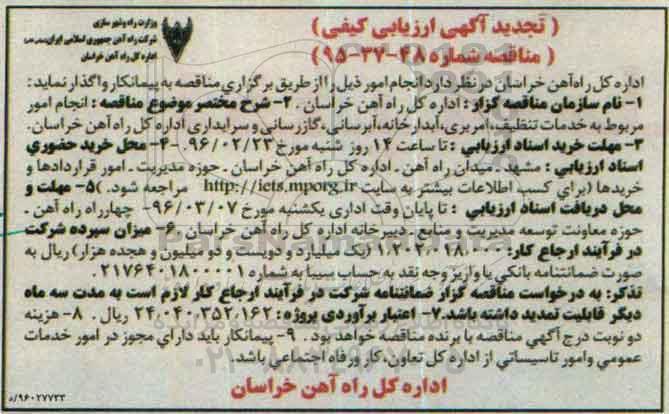 وزارت راه و شهرسازی
شرکت راه آهن جمهوری اسلامی ایران (سهامی خاص)
اداره کل راه آهن خراسان
( تجدید آگهی ارزیابی کیفی )
( مناقصه شماره ۴۸-۳۷-۹۵ )
اداره کل راه‌آهن خراسان در نظر دارد انجام امور ذیل را از طریق برگزاری مناقصه به پیمانکار واگذار نماید :
۱- نام سازمان مناقصه گزار : اداره کل راه آهن خراسان . ۲- شرح مختصر موضوع مناقصه : انجام امور
مربوط به خدمات تنظیف، امربری، آبدارخانه، آبرسانی، گازرسانی و سرایداری اداره کل راه آهن خراسان.
۳- مهلت خرید اسناد ارزیابی : تا ساعت ۱۴ روز شنبه مورخ ۹۶/۰۲/۲۳ .۴- محل خرید حضوری
اسناد ارزیابی : مشهد ـ میدان راه آهن ـ اداره کل راه آهن خراسان ـ حوزه مدیریت ـ امور قراردادها و
خریدها (برای کسب اطلاعات بیشتر به سایت http://iets.mporg.ir مراجعه شود. )۵- مهلت و
محل دریافت اسناد ارزیابی : تا پایان وقت اداری یکشنبه مورخ ۹۶/۰۳/۰۷- چهارراه راه آهن ـ
حوزه معاونت توسعه مدیریت و منابع ـ دبیرخانه اداره کل راه آهن خراسان .۶- میزان سپرده شرکت
در فرآیند ارجاع کار: ۱.۲۰۲.۰۱۸.۰۰۰ (یک میلیارد و دویست و دو میلیون و هجده هزار) ریال به
صورت ضمانتنامه بانکی یا واریز وجه نقد به حساب سیبا به شماره ۲۱۷۶۴۰۱۸۰۰۰۰۱
تذکر: به درخواست مناقصه گزار ضمانتنامه شرکت در فرآیند ارجاع کار لازم است به مدت سه ماه
دیگر قابلیت تمدید داشته باشد.۷- اعتبار برآوردی پروژه : ۲۴،۰۴۰،۳۵۲،۱۶۲ ریال . ۸- هزینه
دو نوبت درج آگهی مناقصه با برنده مناقصه خواهد بود. ۹- پیمانکار باید دارای مجوز در امور خدمات
عمومی وامور تاسیساتی از اداره کل تعاون، کار و رفاه اجتماعی باشد.
اداره کل راه آهن خراسان
۹۶۰۲۷۷۳۳/ه
ParsNamadData